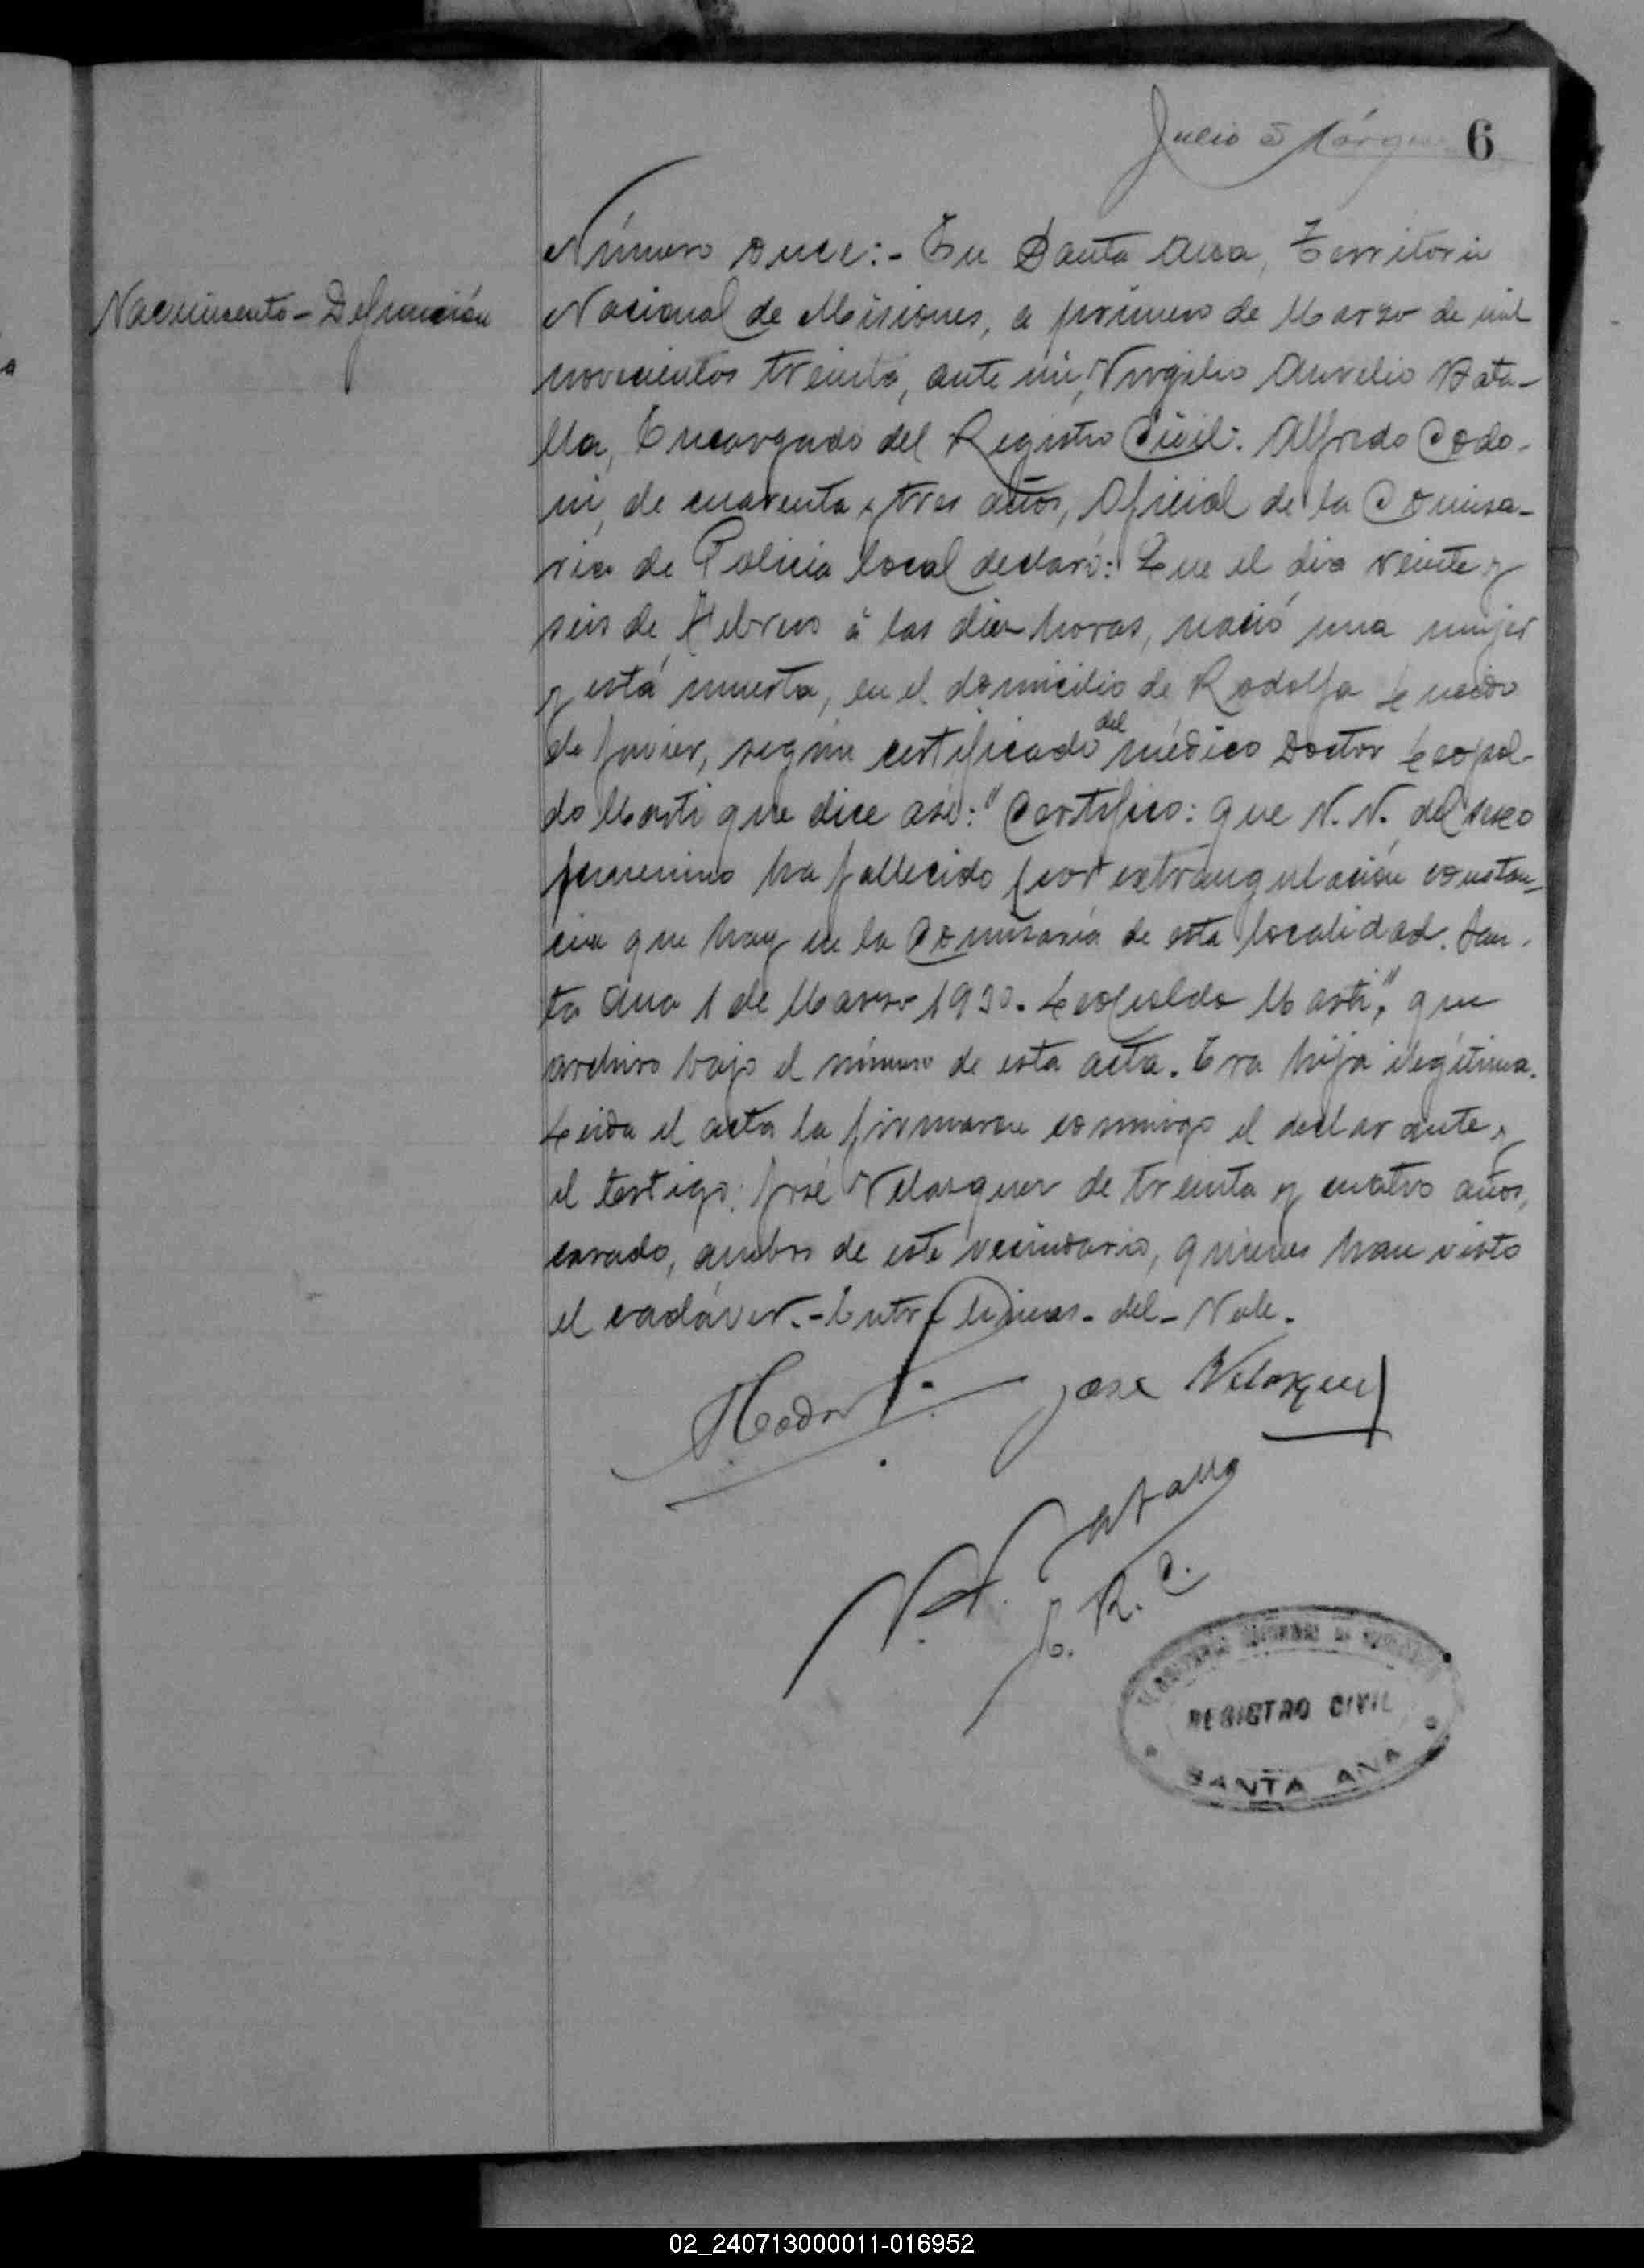 Julio S Márquez 6
Número once:- En Santa Ana, Territorio
Nacimiento - Defunción
Nacional de Misiones, a primero de Marzo de mil
novecientos treinta, ante mi, Virgilio Aurelio Bata-
lla, Encargado del Registro Civil: Alfredo Codo-
ni, de cuarenta y tres años, Oficial de la Comisa-
ria de Policia local declaró: Que el dia veinte y
seis de Febrero á las diez horas, nació una mujer
y está muerta, en el domicilio de Rodolfa
de Javier, según certificado del médico Doctor Leopol-
do Marti que dice asi: "Certifico: que N.N. del sexo
femenino ha fallecido por extrangulación constan-
cia que hay en la Comisaria de esta localidad. San-
ta Ana 1 de Marzo 1930. Leopoldo Marti", que
archivo bajo el número de esta acta. Era hija ilegítima.
Leida el acta la firmaron conmigo el declarante y
el testigo: José Velasquez de treinta y cuatro años,
casado, ambos de este vecindario, quienes han visto
el cadáver.-Entre lineas- del- Vale.
José Velazquez
V. A. Batalla
E. R. C.
REGISTRO CIVIL
SANTA ANA
02_240713000011-016952